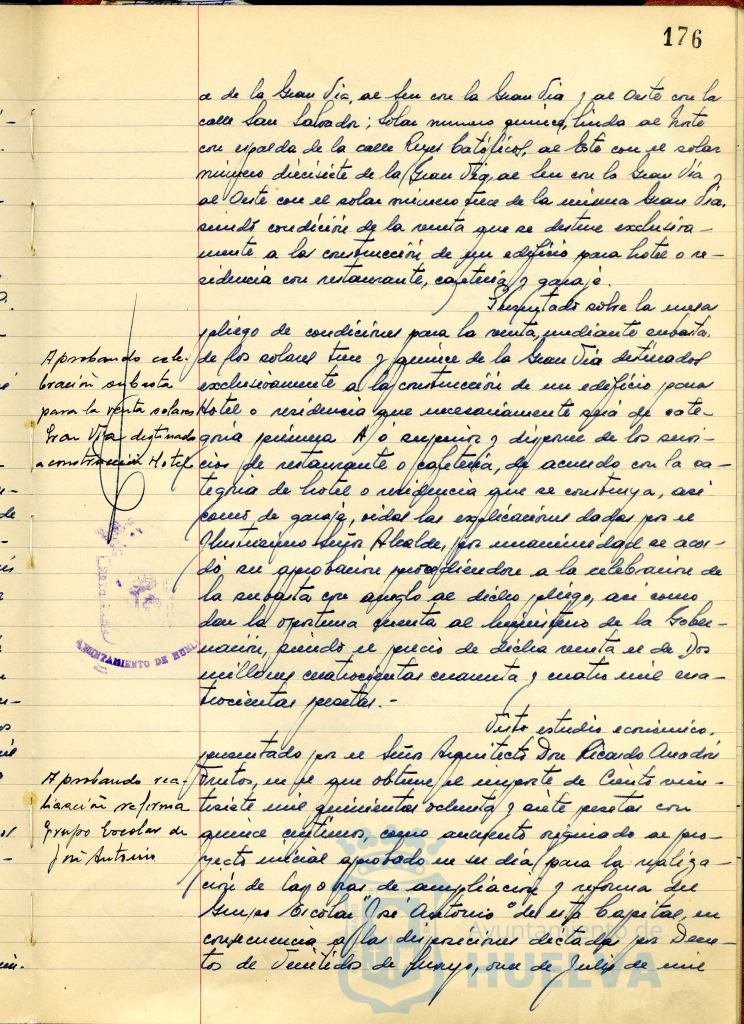 176
a de la Gran Vía, al Sur con la Gran Vía y al Oeste con la
calle San Salvador; Solar número quince, linda al Norte
con espalda de la calle Reyes Católicos, al Este con el solar
número diecisiete de la Gran Vía, al Sur con la Gran Vía y
al Oeste con el solar número trece de la misma Gran Vía,
siendo condición de la venta que se destine exclusiva-
mente a la construcción de un edificio para hotel o re-
sidencia con restaurante, cafetería y garaje.
sobre la mesa
pliego de condiciones para la venta mediante subasta
de los solares trece y quince de la Gran Vía destinados
exclusivamente a la construcción de un edificio para
Hotel o residencia que necesariamente será de cate-
goría primera A ó superior y disponer de los servi-
cios de restaurante o cafetería, de acuerdo con la ca-
tegoría de hotel o residencia que se construya, así
como de garaje, oidas las explicaciones dadas por el
Ilustrísimo Señor Alcalde, por unanimidad se acor-
dó su aprobación procediendose a la celebración de
la subasta con arreglo al dicho pliego, así como
dar la oportuna cuenta al Ministerio de la Gober-
nación, siendo el precio de dicha venta el de Dos
millones cuatrocientas cuarenta y cuatro mil cua-
trocientas pesetas.-
Aprobando cele-
bración subasta
para la venta solares
Gran Vía destinado
a construcción Hotel
AYUNTAMIENTO DE HUEL
Visto estudio económico,
presentado por el Señor Arquitecto Don Ricardo Anadón
Frutos, en el que obtiene el importe de Ciento vein-
tisiete mil quinientas ochenta y siete pesetas con
quince céntimos, como aumento originado al pro-
yecto inicial aprobado en su día para la realiza-
ción de las obras de ampliación y reforma del
Grupo Escolar "José Antonio" de esta Capital, en
consecuencia a las disposiciones dictadas por Decre-
tos de Veintidos de Junio, once de Julio de mil
Aprobando rea-
lización reforma
Grupo Escolar de
José Antonio
Ayuntamiento de
HUELVA